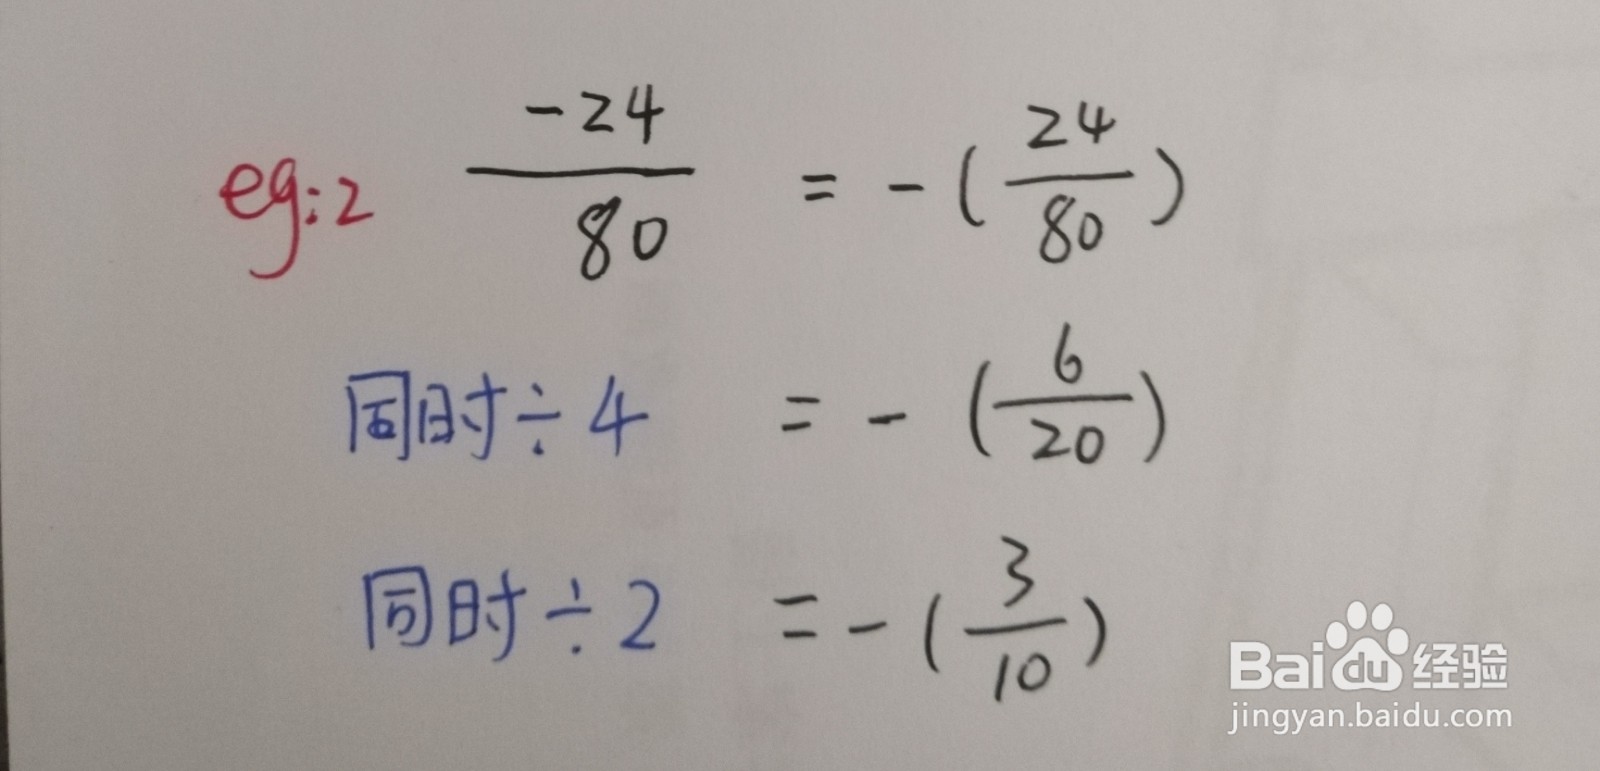 eg:2 -24/80 = -(24/80)
同时÷4 = -(6/20)
同时÷2 = -(3/10)
Baidu经验
jingyan.baidu.com